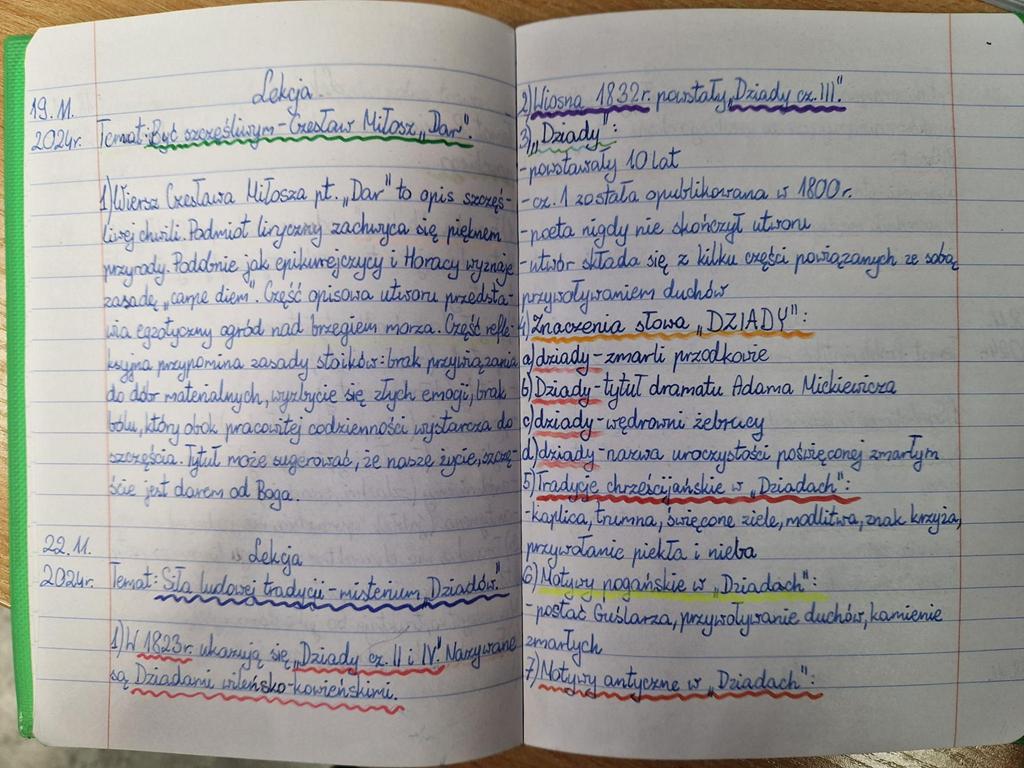 19.11.
2024r.
Lekcja
Temat: Być szczęśliwym - Czesław Miłosz „Dar”.
1) Wiersz Czesława Miłosza pt. „Dar” to opis szczęś-
liwej chwili. Podmiot liryczny zachwyca się pięknem
przyrody. Podobnie jak epikurejczycy i Horacy wyznaje
zasadę „carpe diem”. Część opisowa utworu przedsta-
wia egzotyczny ogród nad brzegiem morza. Część refle-
ksyjna przypomina zasady stoików: brak przywiązania
do dóbr materialnych, wyzbycie się złych emocji, brak
bólu, który obok pracowitej codzienności wystarcza do
szczęścia. Tytuł może sugerować, że nasze życie, szczę-
ście jest darem od Boga.
22.11.
2024r.
Lekcja
Temat: Siła ludowej tradycji - misterium „Dziadów.”
1) W 1823r. ukazują się „Dziady cz. II i IV”. Nazywane
są Dziadami wileńsko-kowieńskimi.
2) Wiosna 1832r. powstały „Dziady cz. III”.
3) „Dziady”:
- powstawały 10 lat
- cz. 1 została opublikowana w 1800r.
- poeta nigdy nie skończył utworu
- utwór składa się z kilku części powiązanych ze sobą
przywoływaniem duchów
4) Znaczenia słowa „DZIADY”:
a) dziady - zmarli przodkowie
b) Dziady - tytuł dramatu Adama Mickiewicza
c) dziady - wędrowni żebracy
d) dziady - nazwa uroczystości poświęconej zmarłym
5) Tradycje chrześcijańskie w „Dziadach”:
- kaplica, trumna, święcone ziele, modlitwa, znak krzyża,
przywołanie piekła i nieba
6) Motywy pogańskie w „Dziadach”:
- postać Guślarza, przywoływanie duchów, kamienie
zmarłych
7) Motywy antyczne w „Dziadach”: